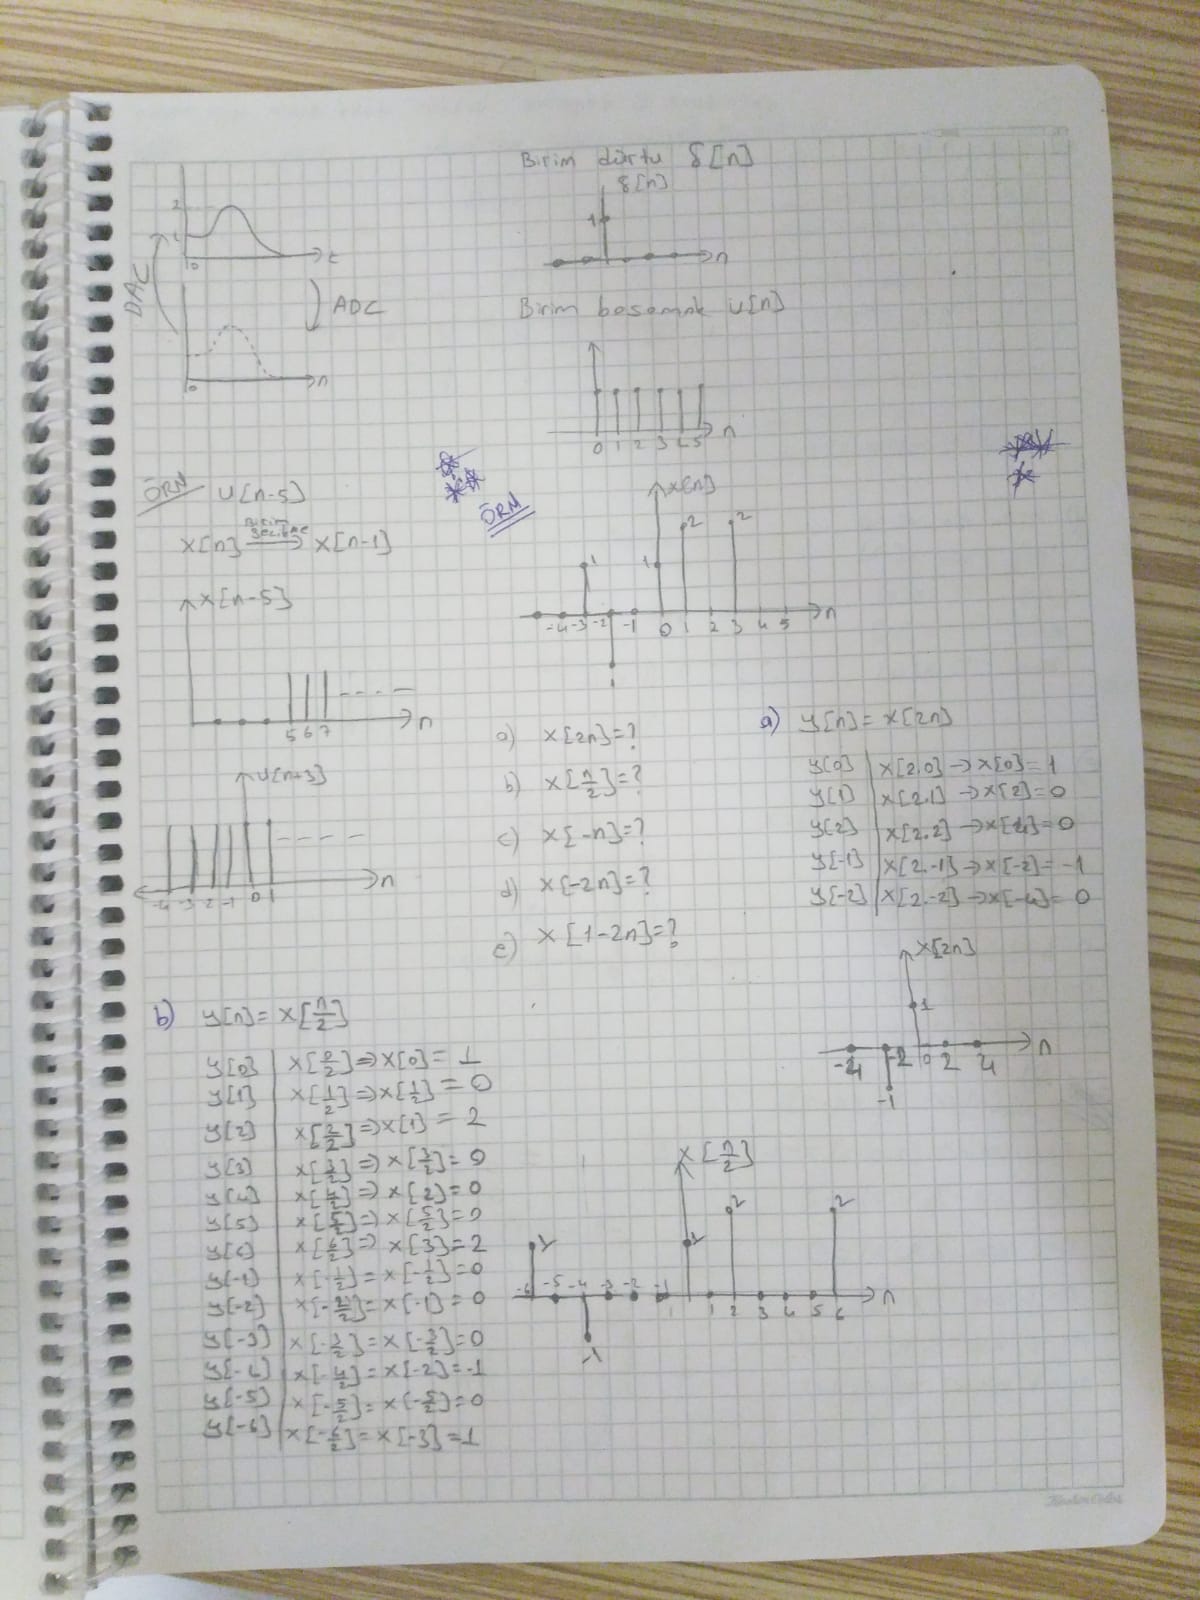 Birim dürtu δ[n]
δ[n]
1
n
2
1
0
t
DAC
ADC
0
n
Birim basamak u[n]
0 1 2 3 4 5
n
ÖRN u[n-5]
x[n] Birim gecikme → x[n-1]
x[n-5]
5 6 7
n
u[n+3]
-4 -3 -2 -1 0 1
n
ÖRN
x[n]
1 1 2 2
-4 -3 -2 -1 0 1 2 3 4 5
n
a) x[2n]=?
b) x[n/2]=?
c) x[-n]=?
d) x[-2n]=?
e) x[1-2n]=?
a) y[n]= x[2n]
y[0] | x[2.0] → x[0]= 1
y[1] | x[2.1] → x[2]= 0
y[2] | x[2.2] → x[4]= 0
y[-1] | x[2.-1] → x[-2]= -1
y[-2] | x[2.-2] → x[-4]= 0
x[2n]
1
-4 -2 0 2 4
n
-1
b) y[n]= x[n/2]
y[0] | x[0/2] ⇒ x[0]= 1
y[1] | x[1/2] ⇒ x[1/2]= 0
y[2] | x[2/2] ⇒ x[1] = 2
y[3] | x[3/2] ⇒ x[3/2]= 0
y[4] | x[4/2] ⇒ x[2]=0
y[5] | x[5/2] ⇒ x[5/2]=0
y[6] | x[6/2] ⇒ x[3]=2
y[-1] | x[-1/2]= x[-1/2]=0
y[-2] | x[-2/2]= x[-1]=0
y[-3] | x[-3/2]= x[-3/2]=0
y[-4] | x[-4/2]= x[-2]=-1
y[-5] | x[-5/2]= x[-5/2]=0
y[-6] | x[-6/2]= x[-3]=1
x[n/2]
1 1 2 2
-6 -5 -4 -3 -2 -1 1 2 3 4 5 6
n
-1